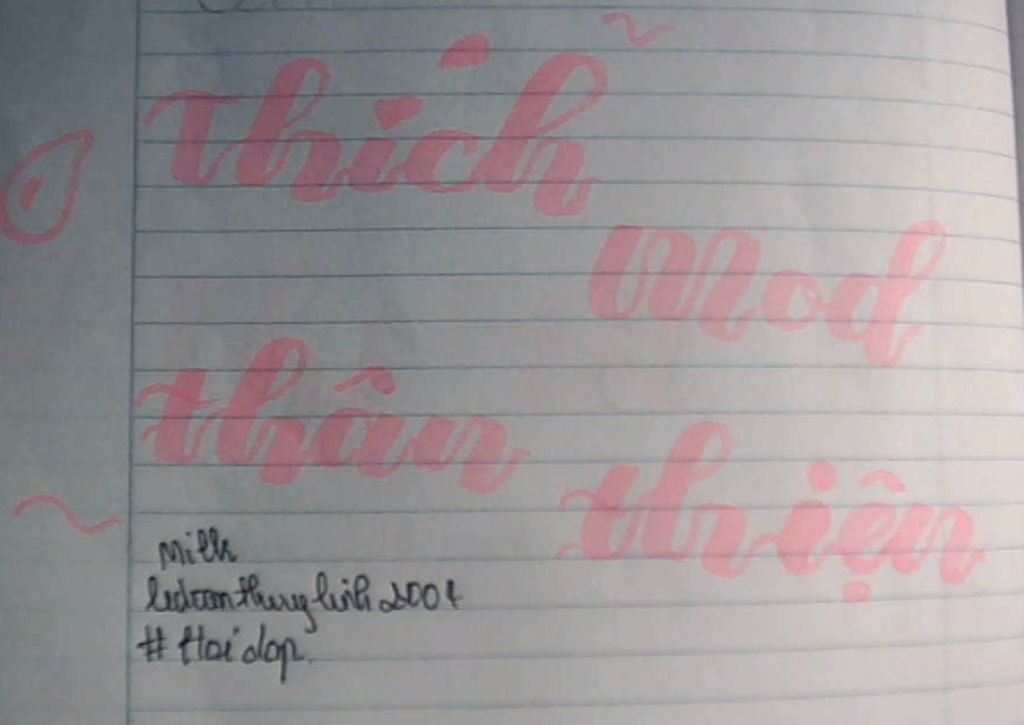 Thích
Mod
thân
thiện
Milk
ledoanthuylinh2004
# Hoidap.